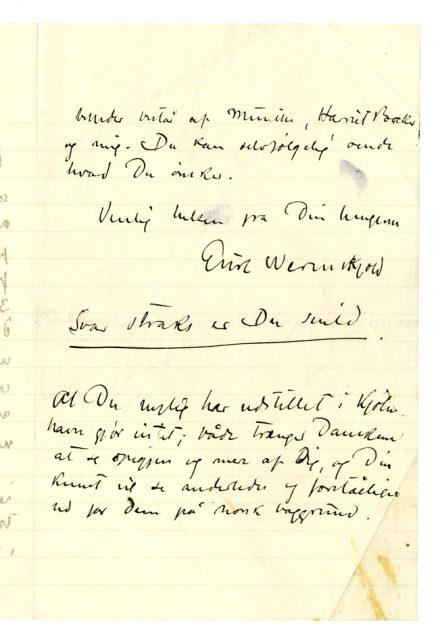 af Munthe, Harriet Backer
og mig. Du kan selvfølgelig sende
hvad Du ønsker.
Venlig hilsen fra Din hengivne
Erik Werenskjold
Svar straks er Du snild.
At Du nylig har udstillet i Kjøben-
havn gjør intet; både trænger Danskene
at se og mer af Dig, og Din
kunst vil se anderledes og forståeligere
ud for dem på norsk baggrund.